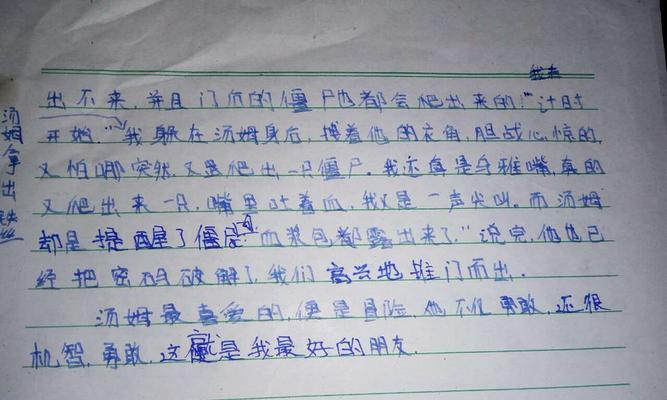 我有
出不来，并且门爪的僵尸也都会爬出来的！"计时
开始。"我躲在汤姆身后，拽着他的衣角，胆战心惊的，
又怕哪突然又是爬出一只僵尸。我还真是乌雅嘴，真的
又爬出来一只，嘴里叶着血，我又是一声尖叫。而汤姆
却是提醒了僵尸血浆包都露出来了"说完，他也已
经把密码破解了，我们高兴地推门而出。
汤姆最喜爱的，便是冒险，他不仅勇敢，还很
机智，勇敢，这就是我最好的朋友。
汤姆拿出